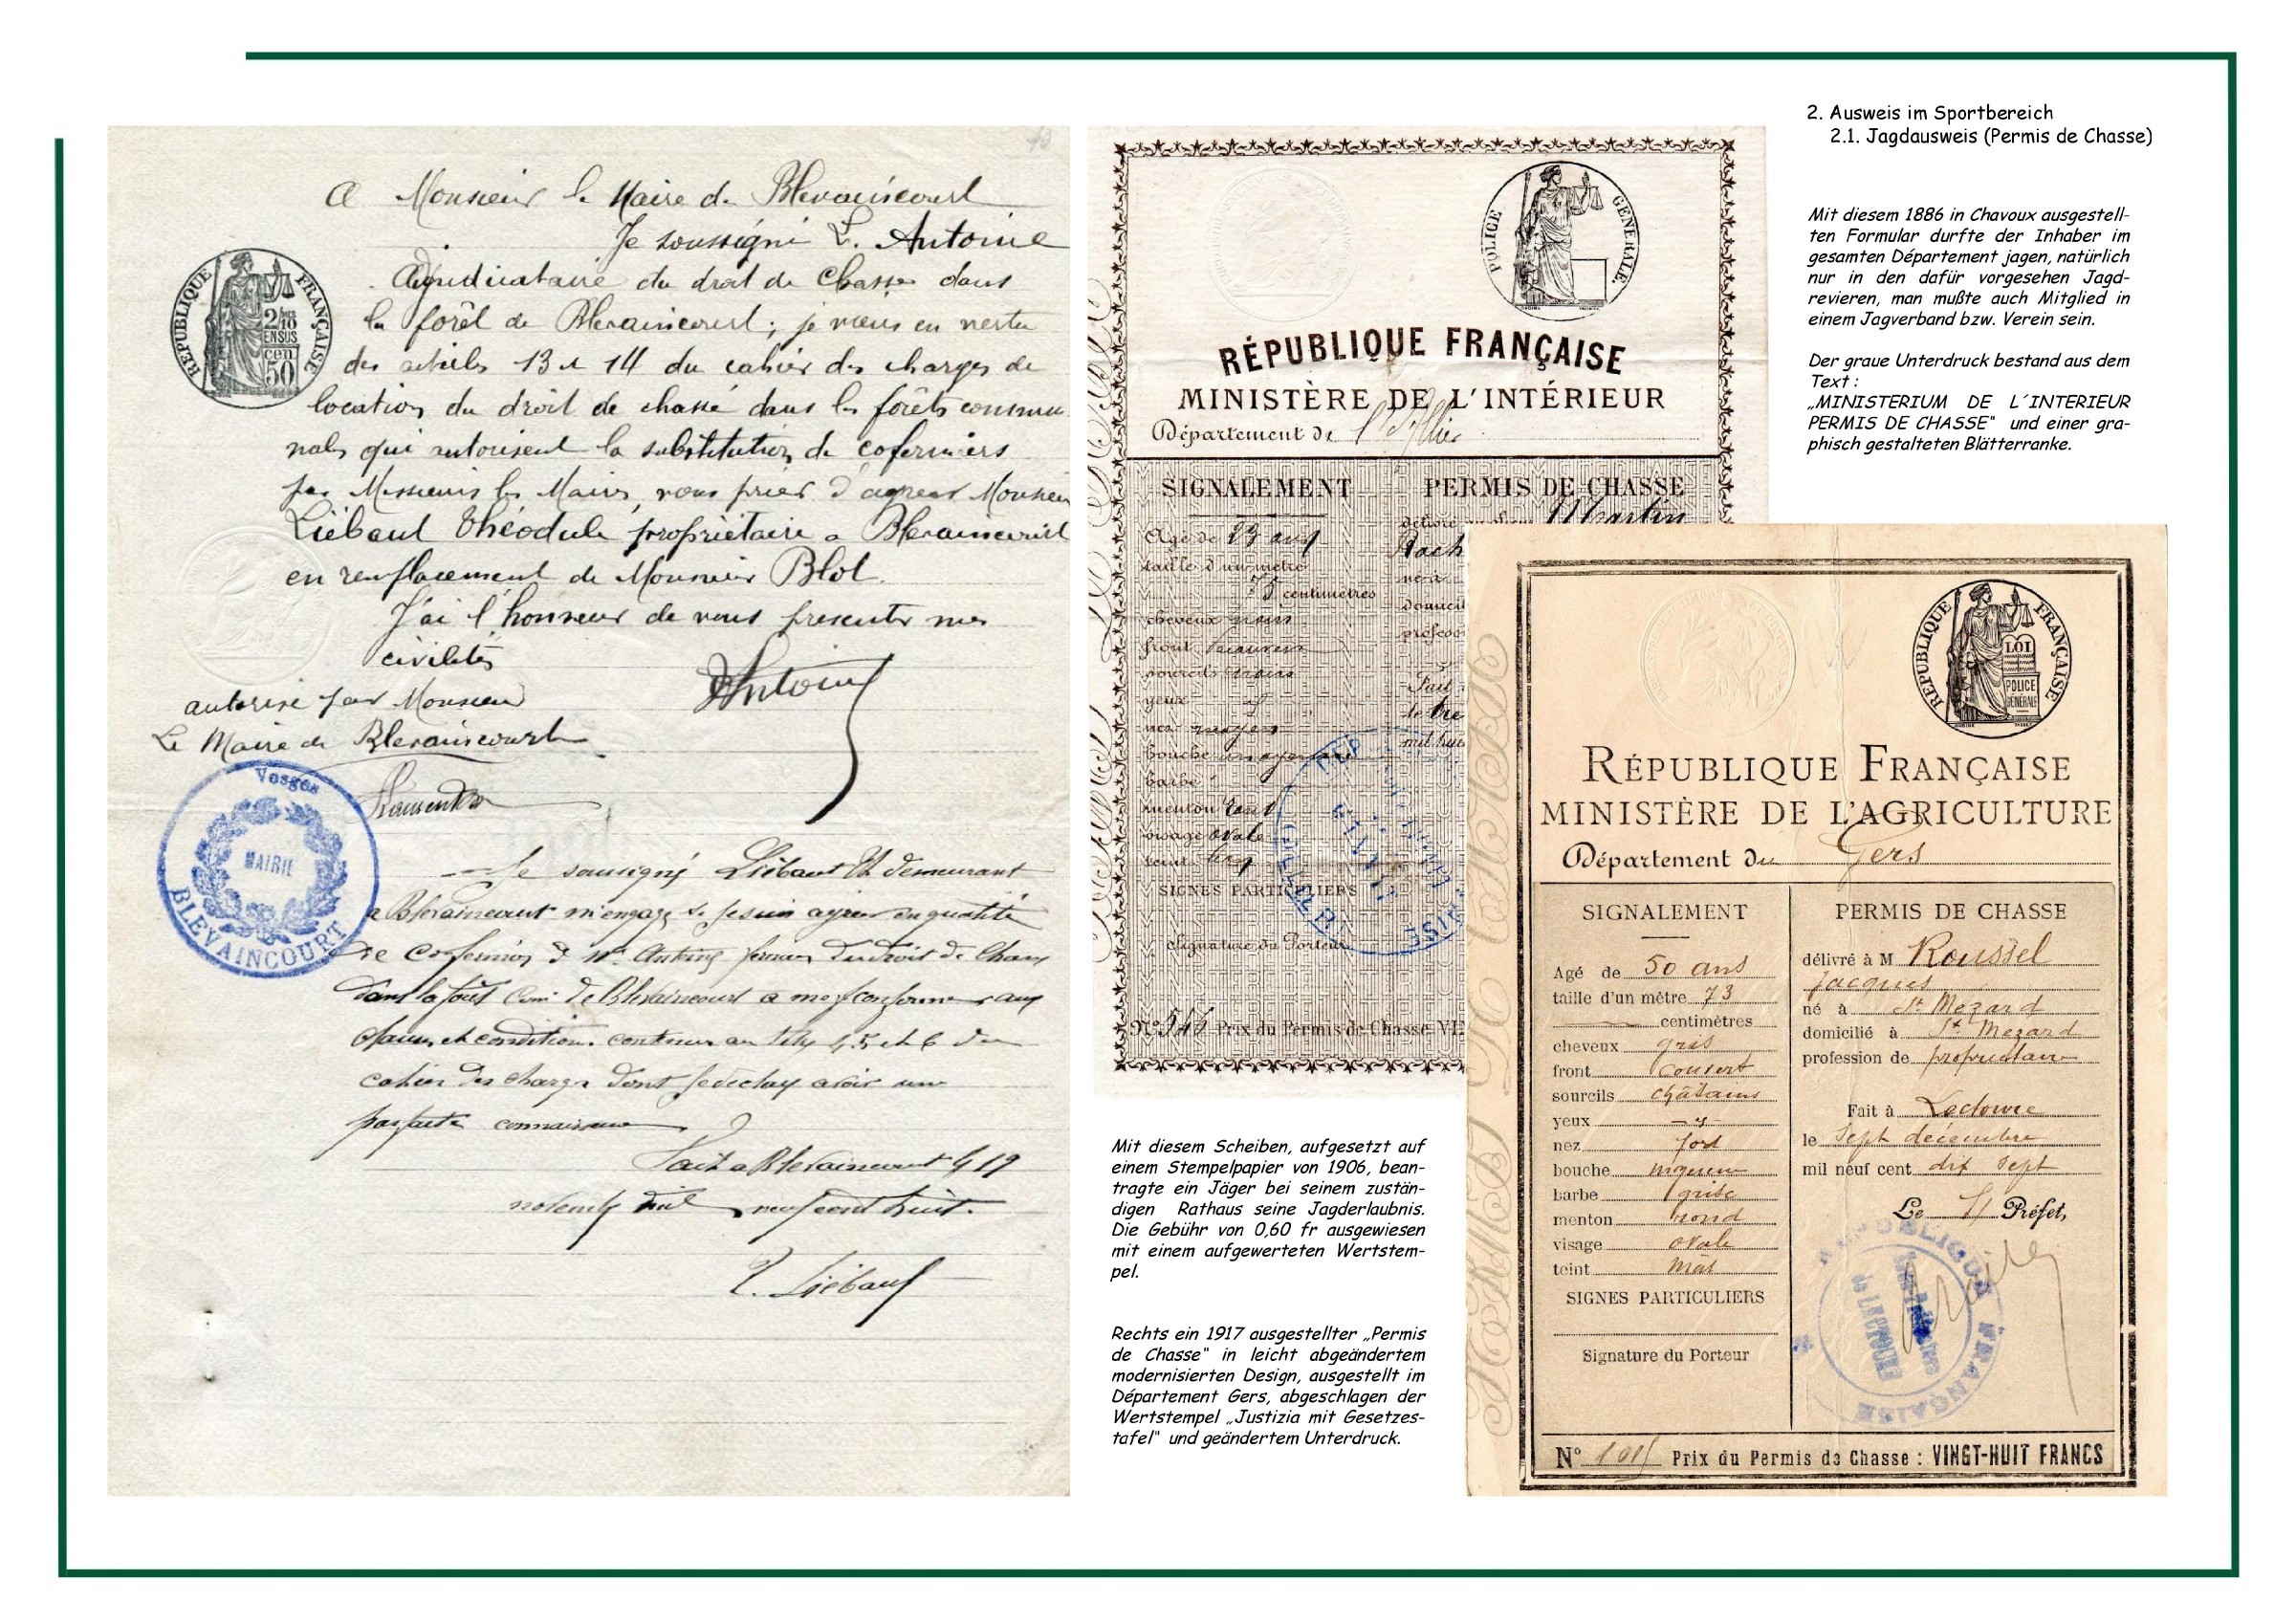 2. Ausweis im Sportbereich
2.1. Jagdausweis (Permis de Chasse)
Mit diesem 1886 in Chavoux ausgestell-
ten Formular durfte der Inhaber im
gesamten Département jagen, natürlich
nur in den dafür vorgesehen Jagd-
revieren, man mußte auch Mitglied in
einem Jagverband bzw. Verein sein.
Der graue Unterdruck bestand aus dem
Text :
„MINISTERIUM DE L´INTERIEUR
PERMIS DE CHASSE“ und einer gra-
phisch gestalteten Blätterranke.
A Monsieur le Maire de Blevaincourt
Je soussigné L. Antoine
Adjudicataire du droit de chasse dans
la forêt de Blevaincourt; je viens en vertu
des articles 13 et 14 du cahier des charges de
location du droit de chasse dans les forêts commu
nales qui autorisent la substitution de cofermiers
par Messieurs les Maires, vous prier d'agréer Monsieur
Liébaut Théodule propriétaire a Blevaincourt
en remplacement de Monsieur Blot.
J'ai l'honneur de vous presenter mes
civilités
Antoine
autorisé par Monsieur
Le Maire de Blevaincourt
RÉPUBLIQUE FRANÇAISE
2/10
EN SUS
cen
50
Vosges
MAIRIE
BLEVAINCOURT
Je soussigné Liébaut Th demeurant
a Blevaincourt m'engage si je suis agréé en qualité
de cofermier de Mr Antoine fermier du droit de chasse
dans la forêt Com. de Blevaincourt a me conformer aux
clauses et conditions contenues au 4, 5 et 6 du
cahier des charges dont je déclare avoir une
parfaite connaissance
Fait a Blevaincourt le 19
novembre mil neuf cent huit.
T. Liébaut
POLICE GÉNÉRALE.
RÉPUBLIQUE FRANÇAISE
MINISTÈRE DE L'INTÉRIEUR
Département de l'Allier
SIGNALEMENT
PERMIS DE CHASSE
Martin
Agé de 23 ans
taille d'un mètre
75 centimètres
cheveux noirs
front
sourcils noirs
yeux
nez moyen
bouche moyenne
barbe
menton rond
visage ovale
teint
SIGNES PARTICULIERS
Signature du Porteur
N° 546 Prix du Permis de Chasse
Mit diesem Scheiben, aufgesetzt auf
einem Stempelpapier von 1906, bean-
tragte ein Jäger bei seinem zustän-
digen Rathaus seine Jagderlaubnis.
Die Gebühr von 0,60 fr ausgewiesen
mit einem aufgewerteten Wertstem-
pel.
Rechts ein 1917 ausgestellter „Permis
de Chasse“ in leicht abgeändertem
modernisierten Design, ausgestellt im
Département Gers, abgeschlagen der
Wertstempel „Justizia mit Gesetzes-
tafel“ und geändertem Unterdruck.
RÉPUBLIQUE FRANÇAISE
LOI
POLICE
GÉNÉRALE
RÉPUBLIQUE FRANÇAISE
MINISTÈRE DE L'AGRICULTURE
Département du Gers
SIGNALEMENT
Agé de 50 ans
taille d'un mètre 73
centimètres
cheveux gris
front couvert
sourcils châtains
yeux
nez fort
bouche moyenne
barbe grise
menton rond
visage ovale
teint mat
SIGNES PARTICULIERS
Signature du Porteur
PERMIS DE CHASSE
délivré à M Roussel
Jacques
né à St Mezard
domicilié à St Mezard
profession de propriétaire
Fait à Lectoure
le Sept décembre
mil neuf cent dix sept
Le S/ Préfet,
RÉPUBLIQUE FRANÇAISE
N° Prix du Permis de Chasse : VINGT-HUIT FRANCS